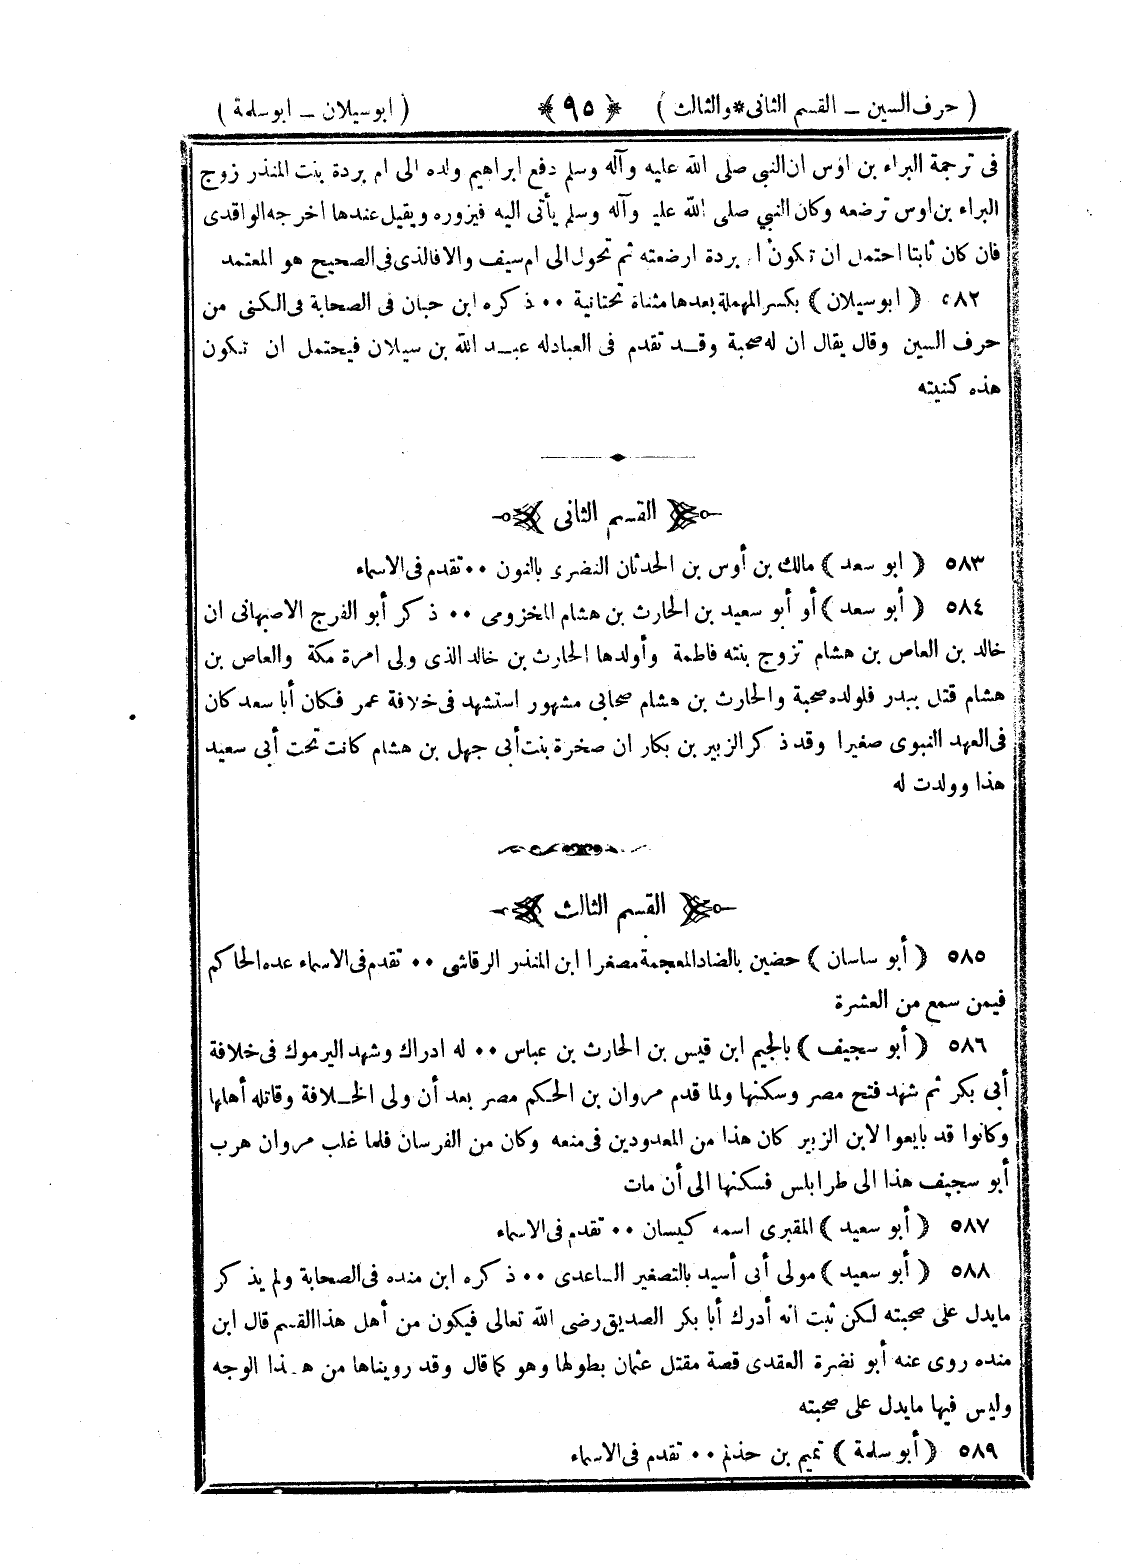 ( حرف السين ــ القسم الثانى * والثالث ) ﴿ ٩٥ ﴾ ( ابو سيلان ــ ابو سلمة )
فى ترجمة البراء بن اوس ان النبي صلى الله عليه وآله وسلم دفع ابراهيم ولده الى ام بردة بنت المنذر زوج
البراء بن اوس ترضعه وكان النبي صلى الله عليه وآله وسلم يأتى اليه فيزوره ويقيل عندها اخرجه الواقدى
فان كان ثابتا احتمل ان تكون ام بردة ارضعته ثم تحول الى ام سيف والا فالذى فى الصحيح هو المعتمد
٥٨٢ ( ابو سيلان ) بكسر المهملة بعدها مثناة تحتانية ٠٠ ذكره ابن حبان فى الصحابة فى الكنى من
حرف السين وقال يقال ان له صحبة وقـد تقدم فى العبادله عبـد الله بن سيلان فيحتمل ان تكون
هذه كنيته
القسم الثانى
٥٨٣ ( ابو سعد ) مالك بن أوس بن الحدثان النضرى بالنون ٠٠ تقدم فى الاسماء
٥٨٤ ( أبو سعد ) أو أبو سعيد بن الحارث بن هشام المخزومى ٠٠ ذكر أبو الفرج الاصبهانى ان
خالد بن العاص بن هشام تزوج بنته فاطمة وأولدها الحارث بن خالد الذى ولى امرة مكة والعاص بن
هشام قتل ببدر فلولده صحبة والحارث بن هشام صحابى مشهور استشهد فى خلافة عمر فكان أبا سعد كان
فى العهد النبوى صغيرا وقد ذكر الزبير بن بكار ان صخرة بنت أبى جهل بن هشام كانت تحت أبى سعيد
هذا وولدت له
القسم الثالث
٥٨٥ ( أبو ساسان ) حضين بالضاد المعجمة مصغرا ابن المنذر الرقاشى ٠٠ تقدم فى الاسماء عده الحاكم
فيمن سمع من العشرة
٥٨٦ ( أبو سجيف ) بالجيم ابن قيس بن الحارث بن عباس ٠٠ له ادراك وشهد اليرموك فى خلافة
أبى بكر ثم شهد فتح مصر وسكنها ولما قدم مروان بن الحكم مصر بعد أن ولى الخـلافة وقاتله أهلها
وكانوا قد بايعوا لابن الزبير كان هذا من المعدودين فى منعه وكان من الفرسان فلما غلب مروان هرب
أبو سجيف هذا الى طرابلس فسكنها الى أن مات
٥٨٧ ( أبو سعيد ) المقبرى اسمه كيسان ٠٠ تقدم فى الاسماء
٥٨٨ ( أبو سعيد ) مولى أبى أسيد بالتصغير الساعدى ٠٠ ذكره ابن منده فى الصحابة ولم يذكر
مايدل على صحبته لكن ثبت انه أدرك أبا بكر الصديق رضى الله تعالى فيكون من أهل هذا القسم قال ابن
منده روى عنه أبو نضرة العقدى قصة مقتل عثمان بطولها وهو كما قال وقد رويناها من هـذا الوجه
وليس فيها مايدل على صحبته
٥٨٩ ( أبو سلمة ) تميم بن حذلم ٠٠ تقدم فى الاسماء